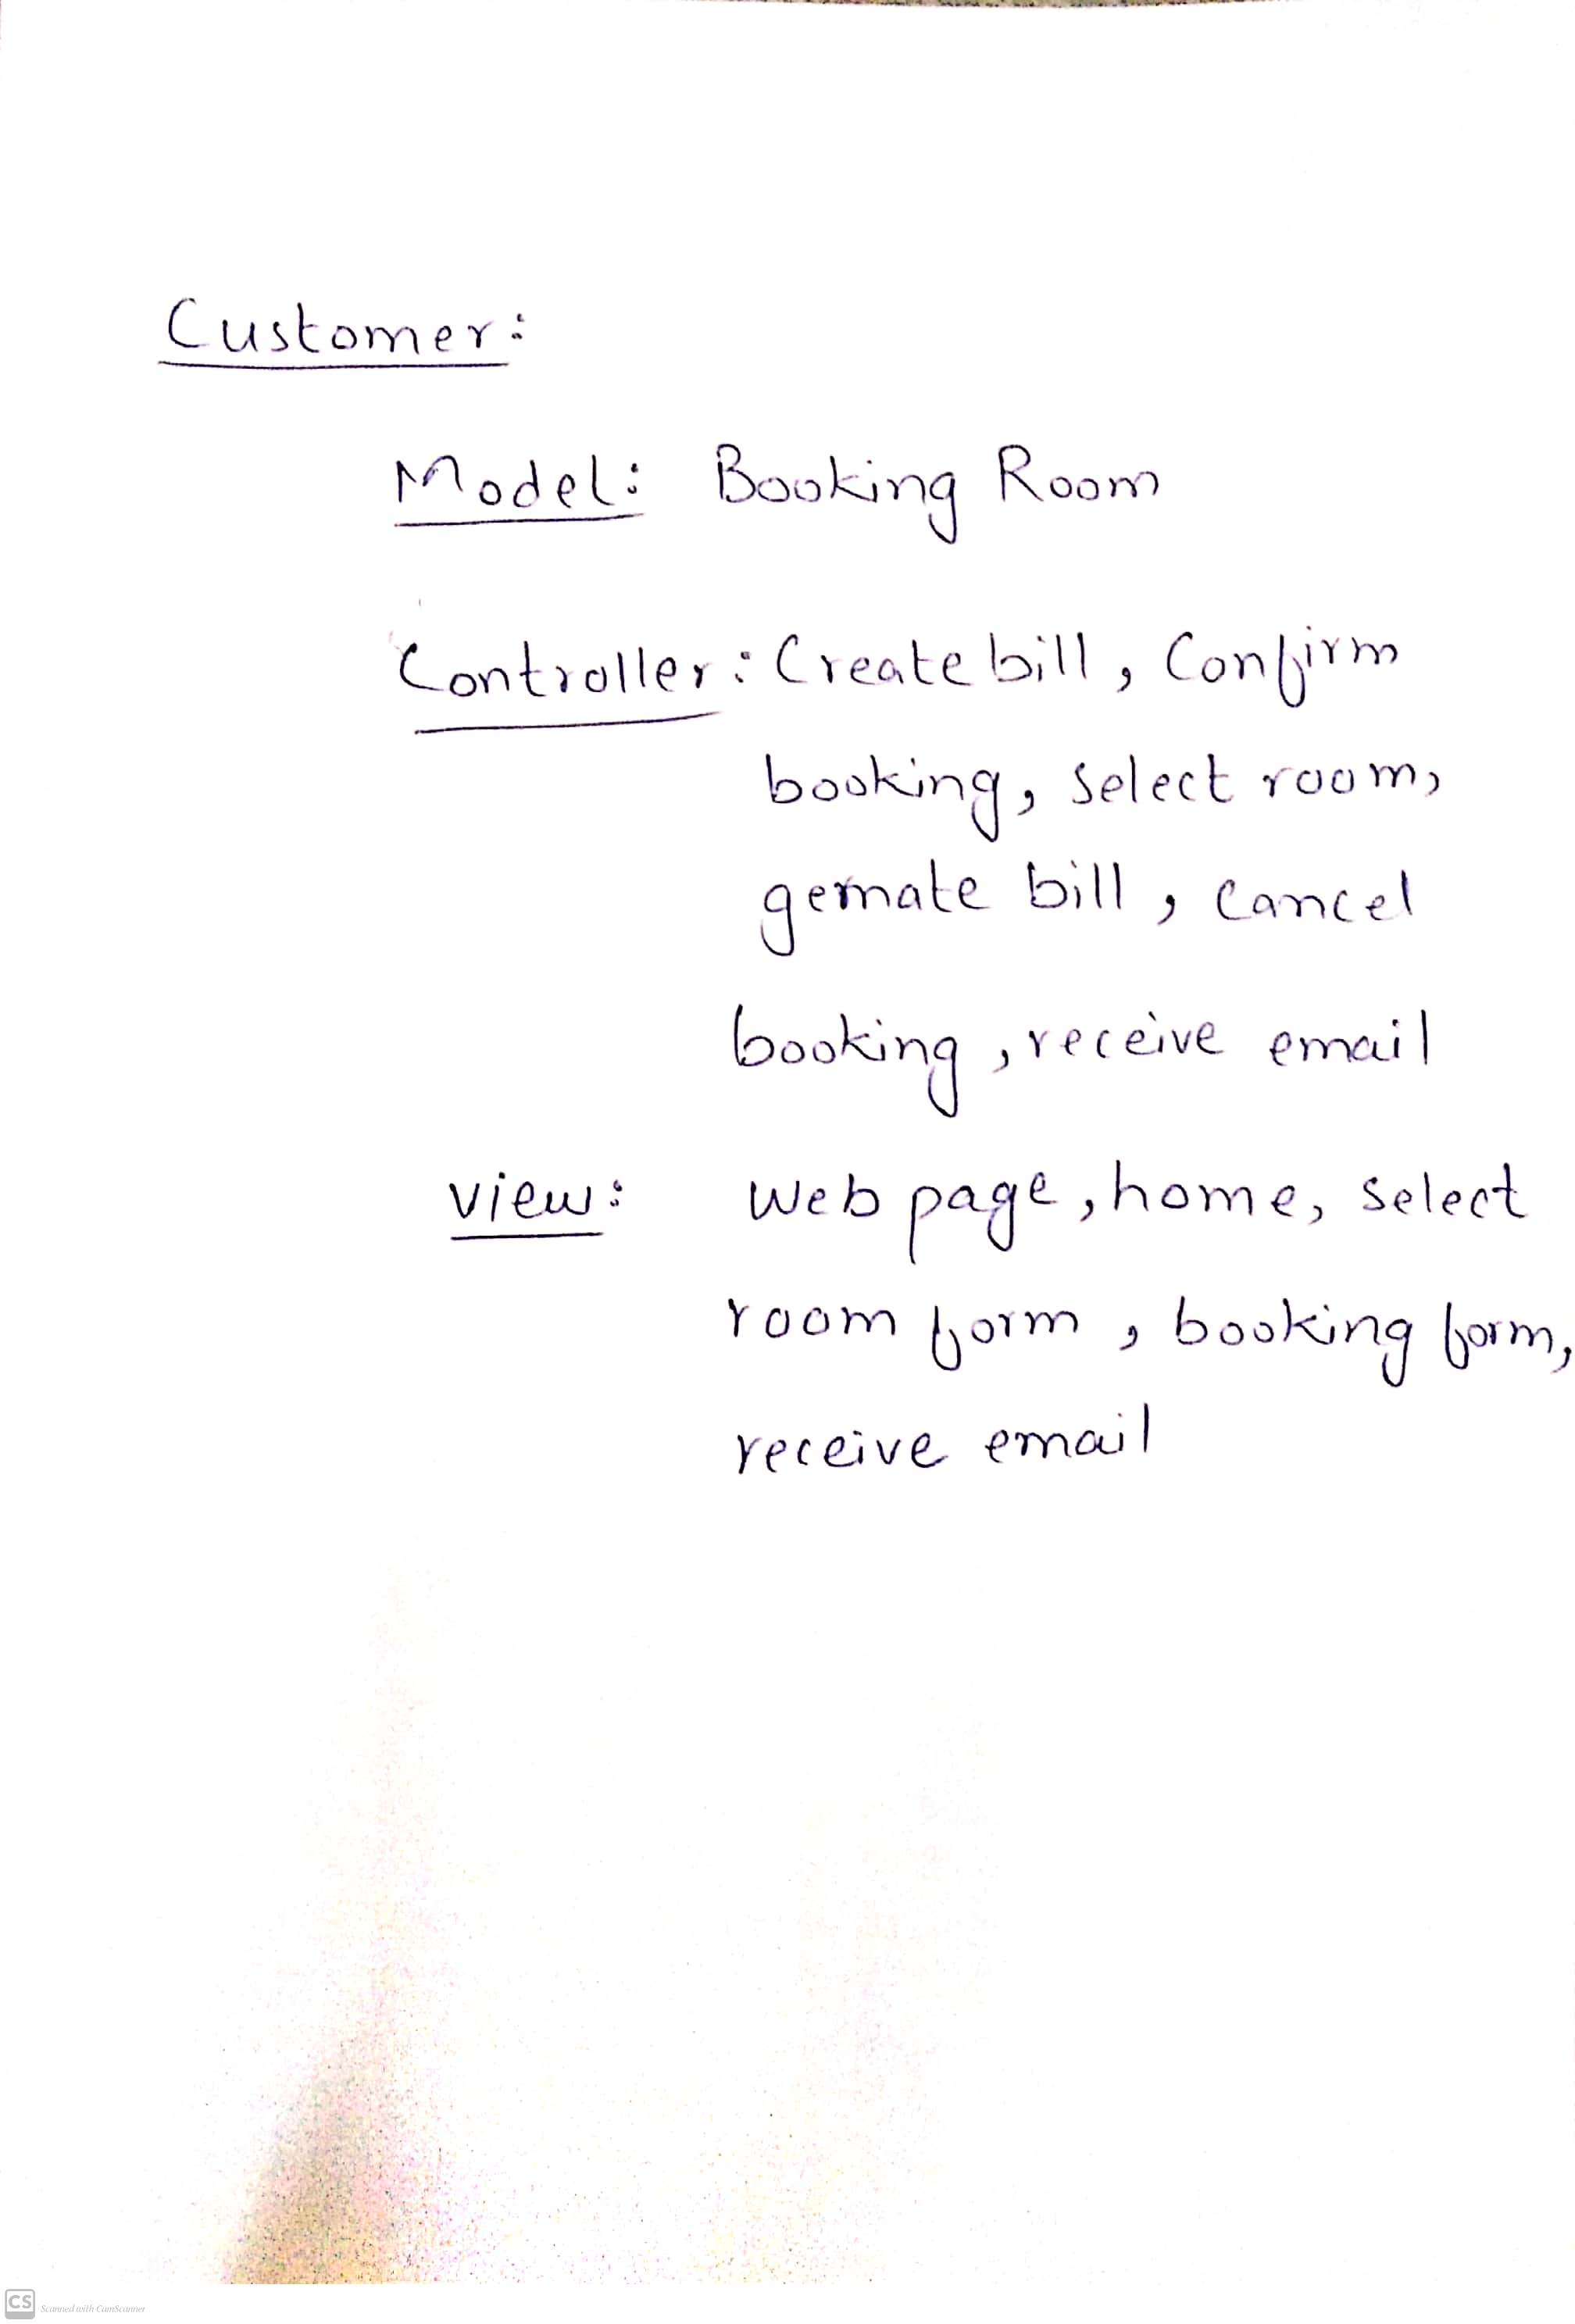 Customer:
Model: Booking Room
Controller: Create bill, Confirm
booking, select room,
gernate bill, cancel
booking, receive email
view: web page, home, select
room form, booking form,
receive email
CS Scanned with CamScanner